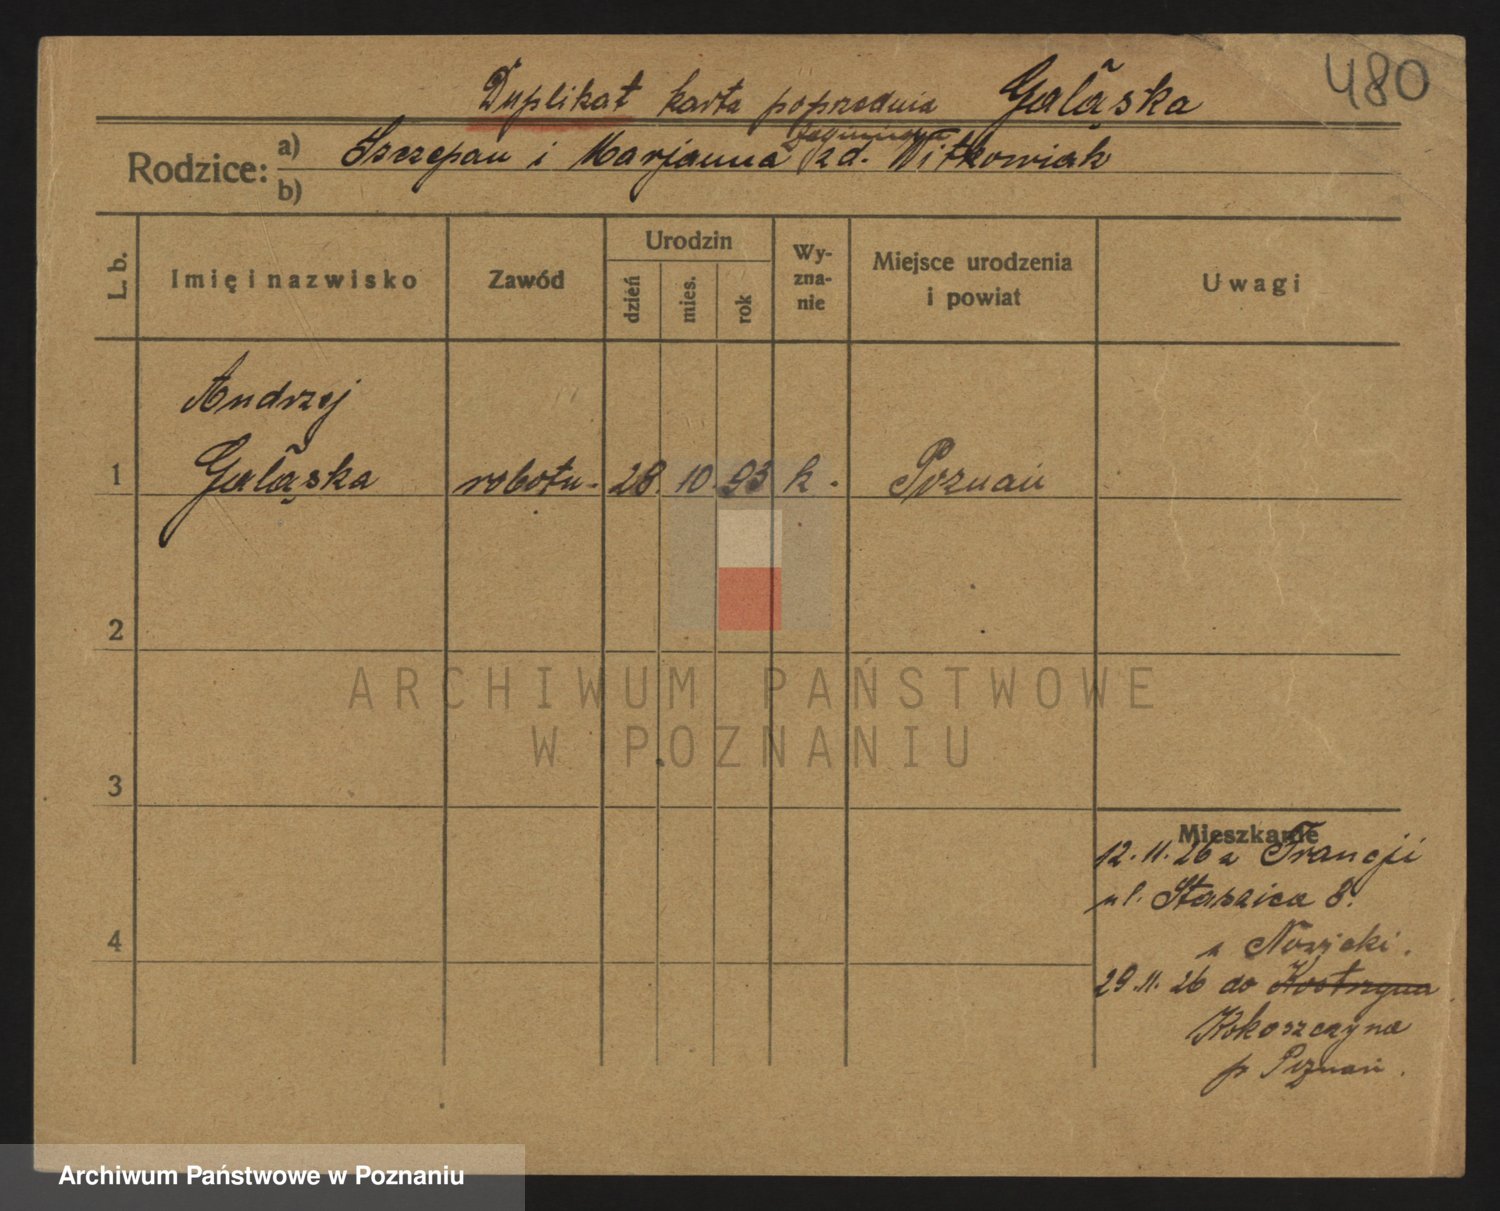 480
Duplikat karta poprzednia Galąska
Rodzice: a) Szczepan i Marjanna zd. Witkowiak
b)
L. b.
Imię i nazwisko
Zawód
Urodzin
dzień
mies.
rok
Wy-
zna-
nie
Miejsce urodzenia
i powiat
Uwagi
Andrzej
1 Galąska robotn. 28. 10. 93 k. Poznań
2
ARCHIWUM PAŃSTWOWE
W POZNANIU
3
Mieszkanie
12.11.26 z Francji
ul. Staszica 8.
u Nowicki.
4
29.11.26 do Kostrzyna
Kokoszczyna
p Poznań.
Archiwum Państwowe w Poznaniu